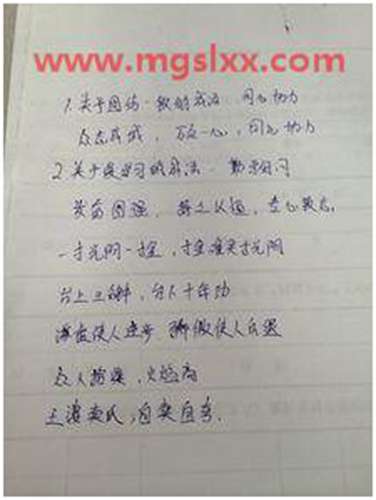 www.mgslxx.com
1.关于团结一致的成语:同心协力
众志成城,万众一心,同心协力
2.关于提学习的成语:勤学好问
发奋图强,持之以恒,专心致志
一寸光阴一寸金,寸金难买寸光阴
台上三分钟,台下十年功
谦虚使人进步 骄傲使人落后
众人拾柴,火焰高
王婆卖瓜,自卖自夸.